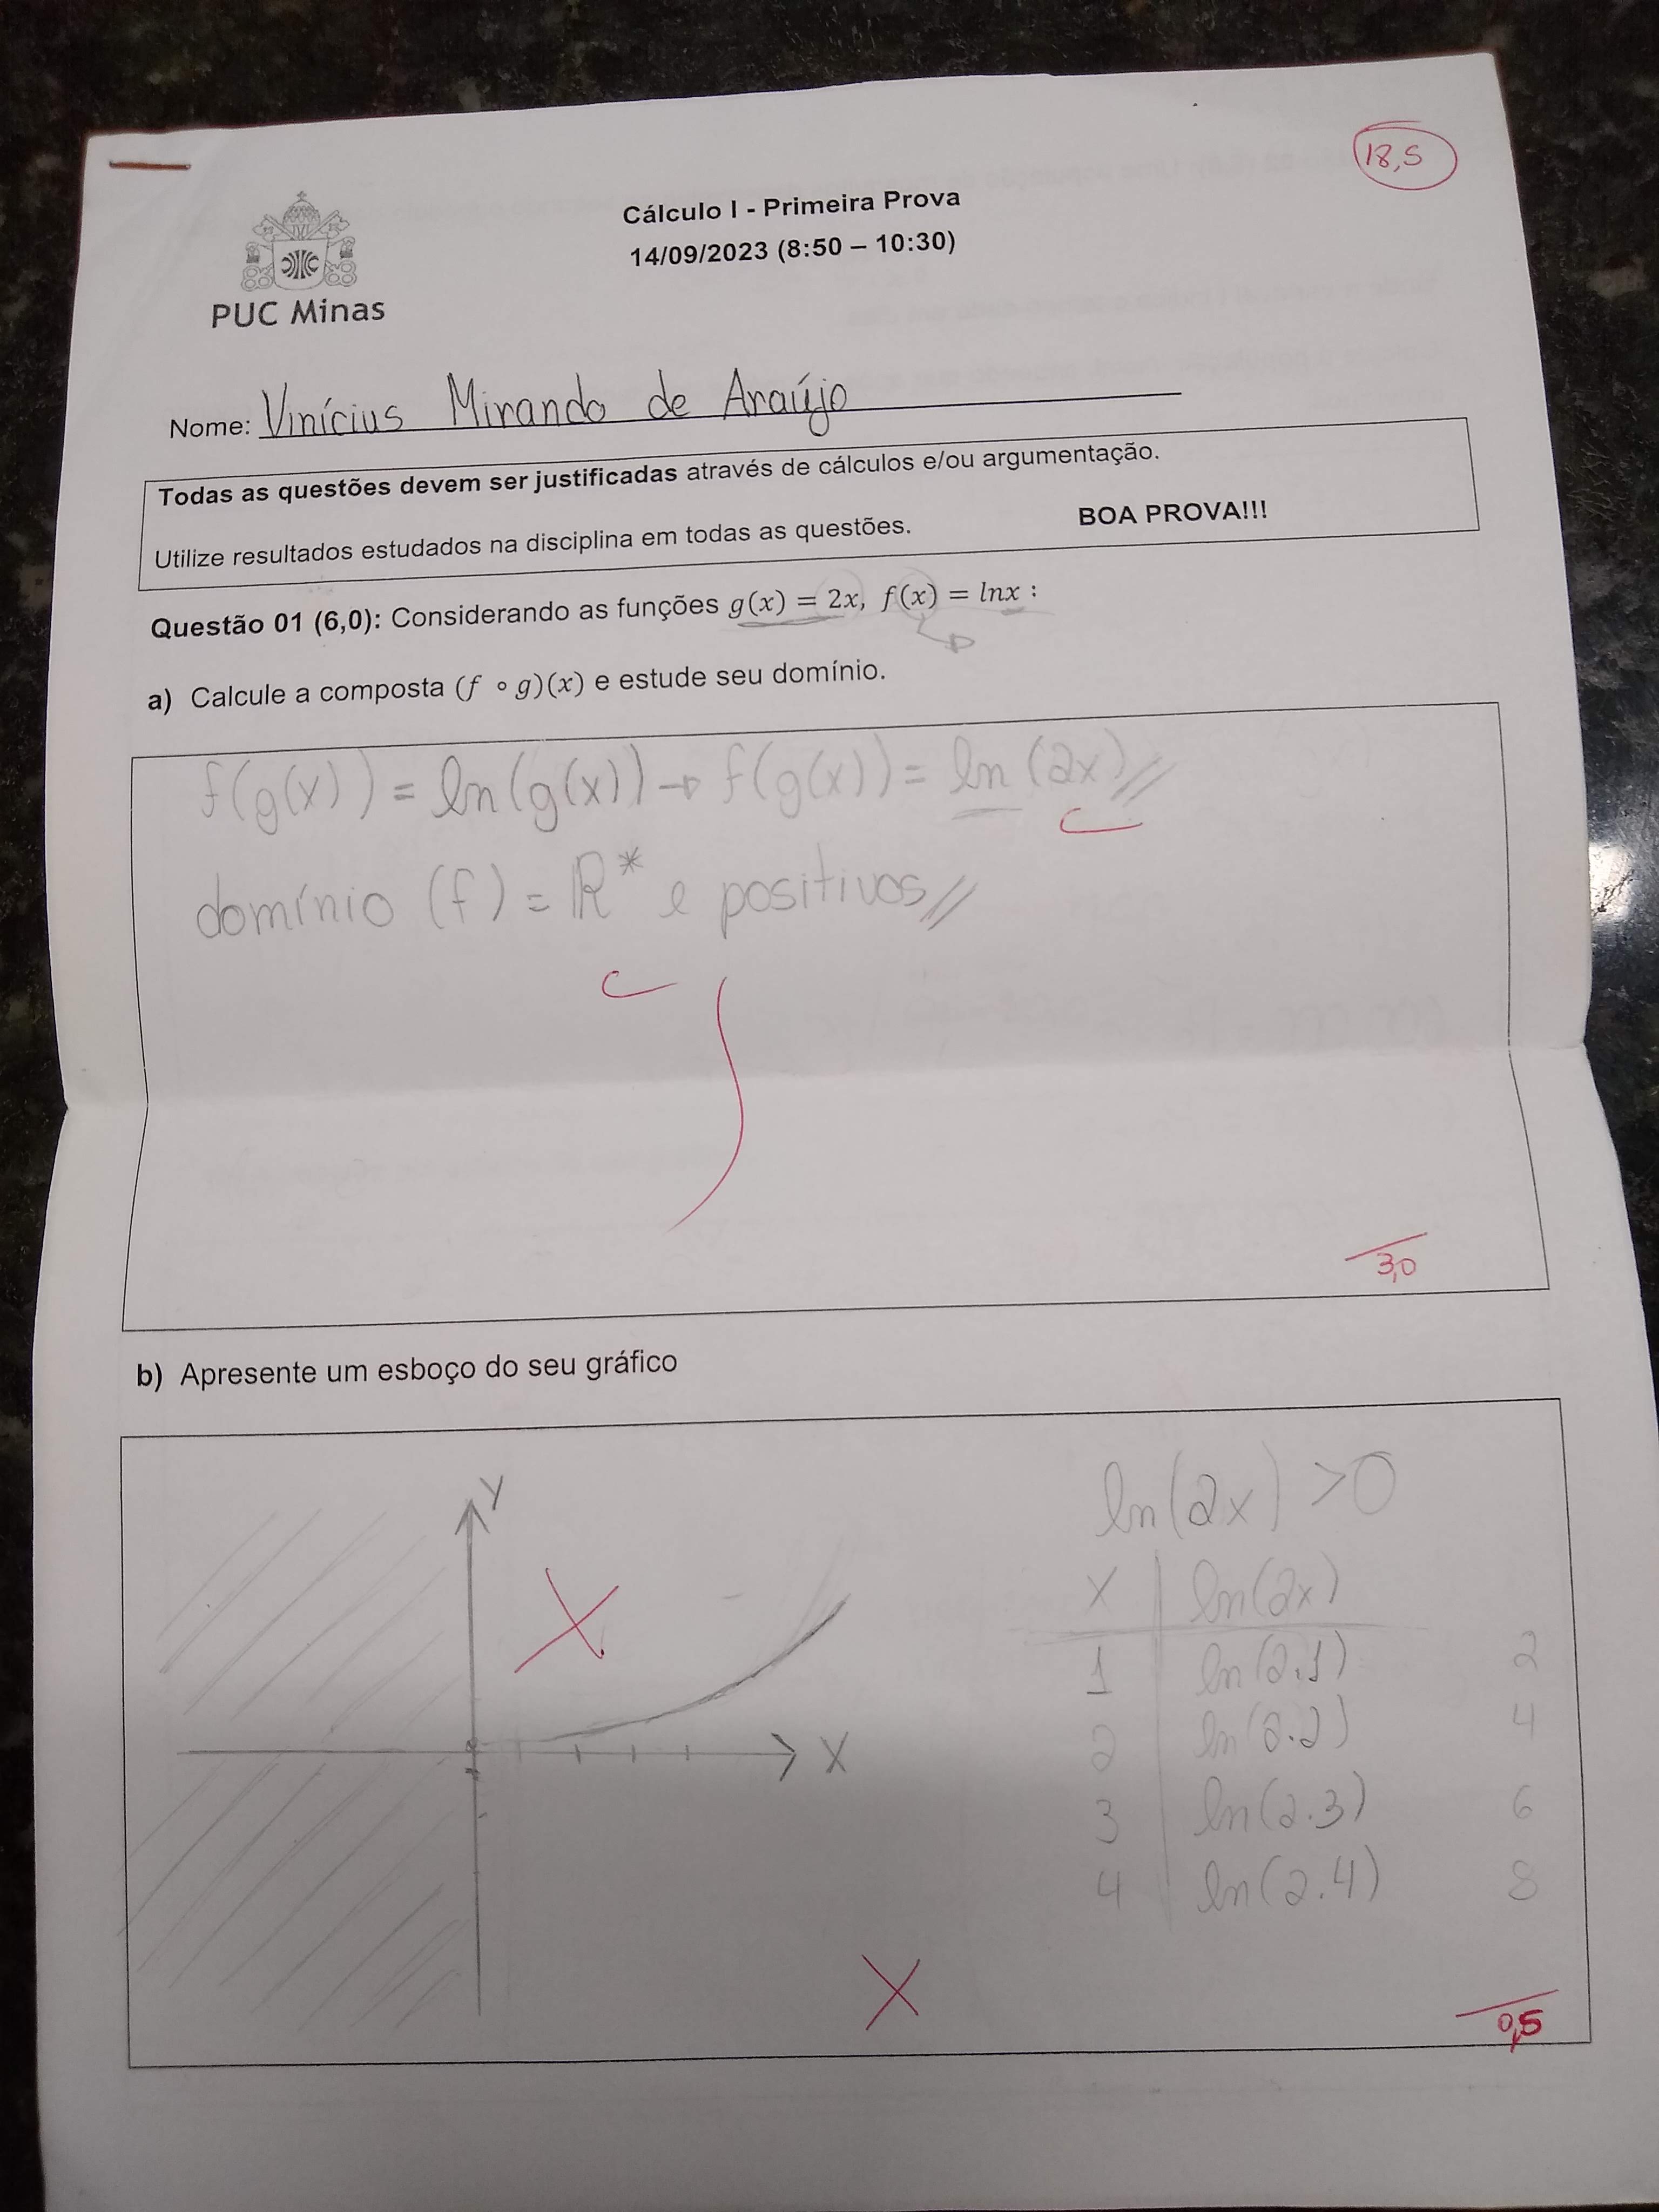 18,5
Cálculo I - Primeira Prova
14/09/2023 (8:50 – 10:30)
PUC Minas
Nome: Vinícius Miranda de Araújo
Todas as questões devem ser justificadas através de cálculos e/ou argumentação.
Utilize resultados estudados na disciplina em todas as questões. BOA PROVA!!!
Questão 01 (6,0): Considerando as funções g(x) = 2x, f(x) = lnx :
a) Calcule a composta (f ∘ g)(x) e estude seu domínio.
f(g(x)) = ln(g(x)) → f(g(x)) = ln(2x)//
domínio (f) = ℝ* e positivos//
3,0
b) Apresente um esboço do seu gráfico
Y
X
ln(2x) >0
X | ln(2x)
1 | ln(2.1) 2
2 | ln(2.2) 4
3 | ln(2.3) 6
4 | ln(2.4) 8
0,5